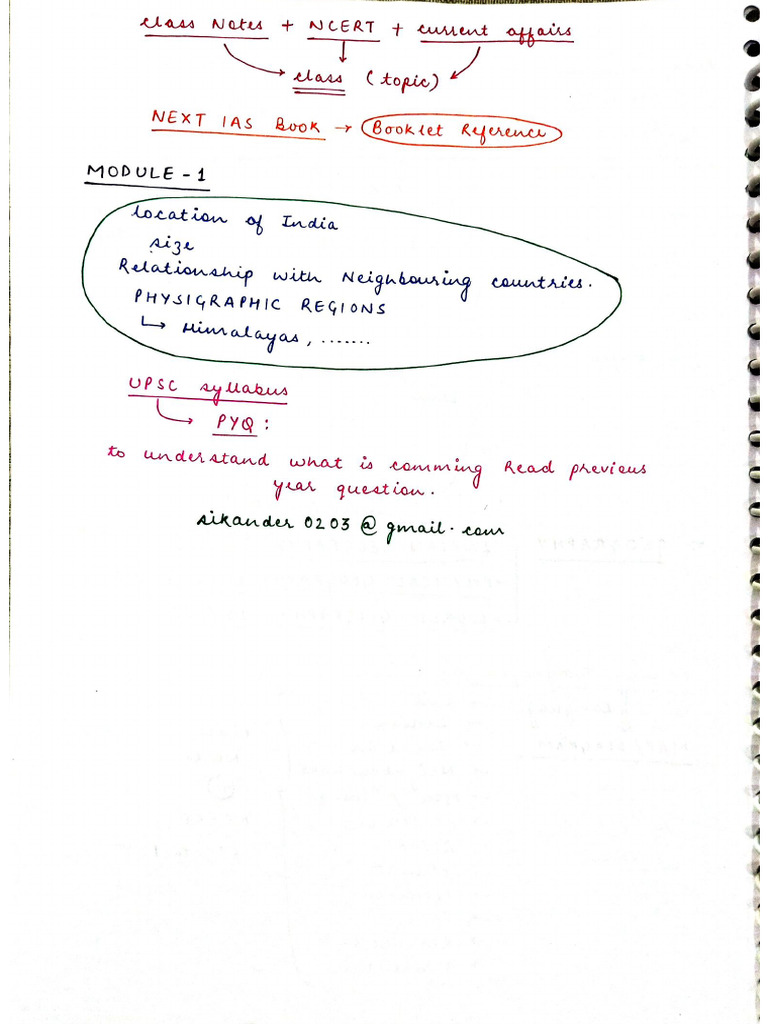 class Notes + NCERT + current affairs
class (topic)
NEXT IAS BOOK → Booklet Reference
MODULE - 1
location of India
size
Relationship with Neighbouring countries.
PHYSIGRAPHIC REGIONS
↳ Himalayas, .......
UPSC syllabus
↳ PYQ :
to understand what is comming Read previous
year question.
sikander0203@gmail.com